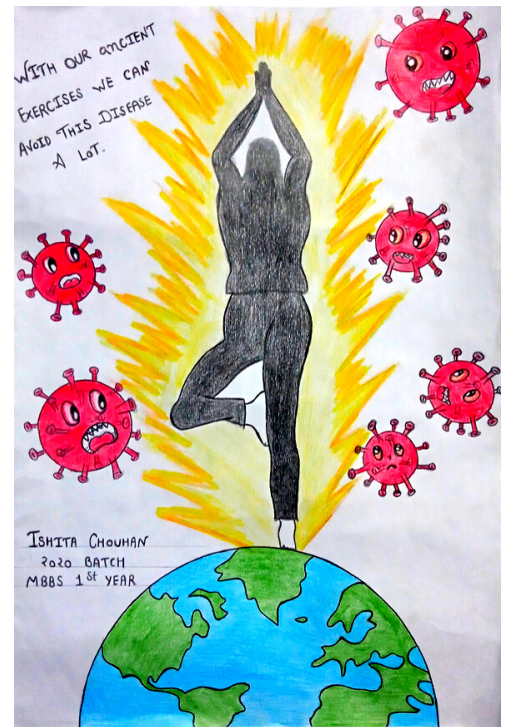 WITH OUR ANCIENT
EXERCISES WE CAN
AVOID THIS DISEASE
A LOT.
ISHITA CHOUHAN
2020 BATCH
MBBS 1St YEAR